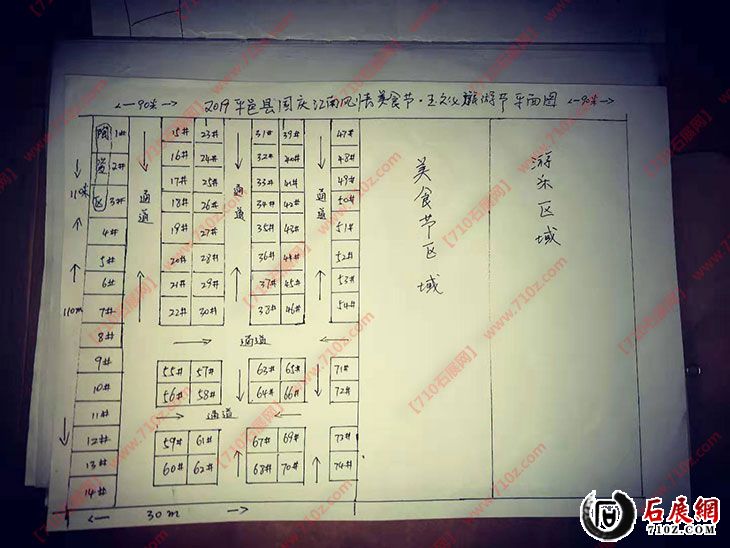 ←90米→ 2019平邑县国庆江南风情美食节·玉文化旅游节平面图 ←90米→
陶瓷区
110米
110m
1#
2#
3#
4#
5#
6#
7#
8#
9#
10#
11#
12#
13#
14#
通道
15# 23#
16# 24#
17# 25#
18# 26#
19# 27#
20# 28#
21# 29#
22# 30#
通道
31# 39#
32# 40#
33# 41#
34# 42#
35# 43#
36# 44#
37# 45#
38# 46#
通道
47#
48#
49#
50#
51#
52#
53#
54#
通道
55# 57#
56# 58#
63# 65#
64# 66#
71#
72#
通道
59# 61#
60# 62#
67# 69#
68# 70#
72#
74#
30m
美食节区域
游乐区域
【710石展网】 www.710z.com
石展網
710Z.COM